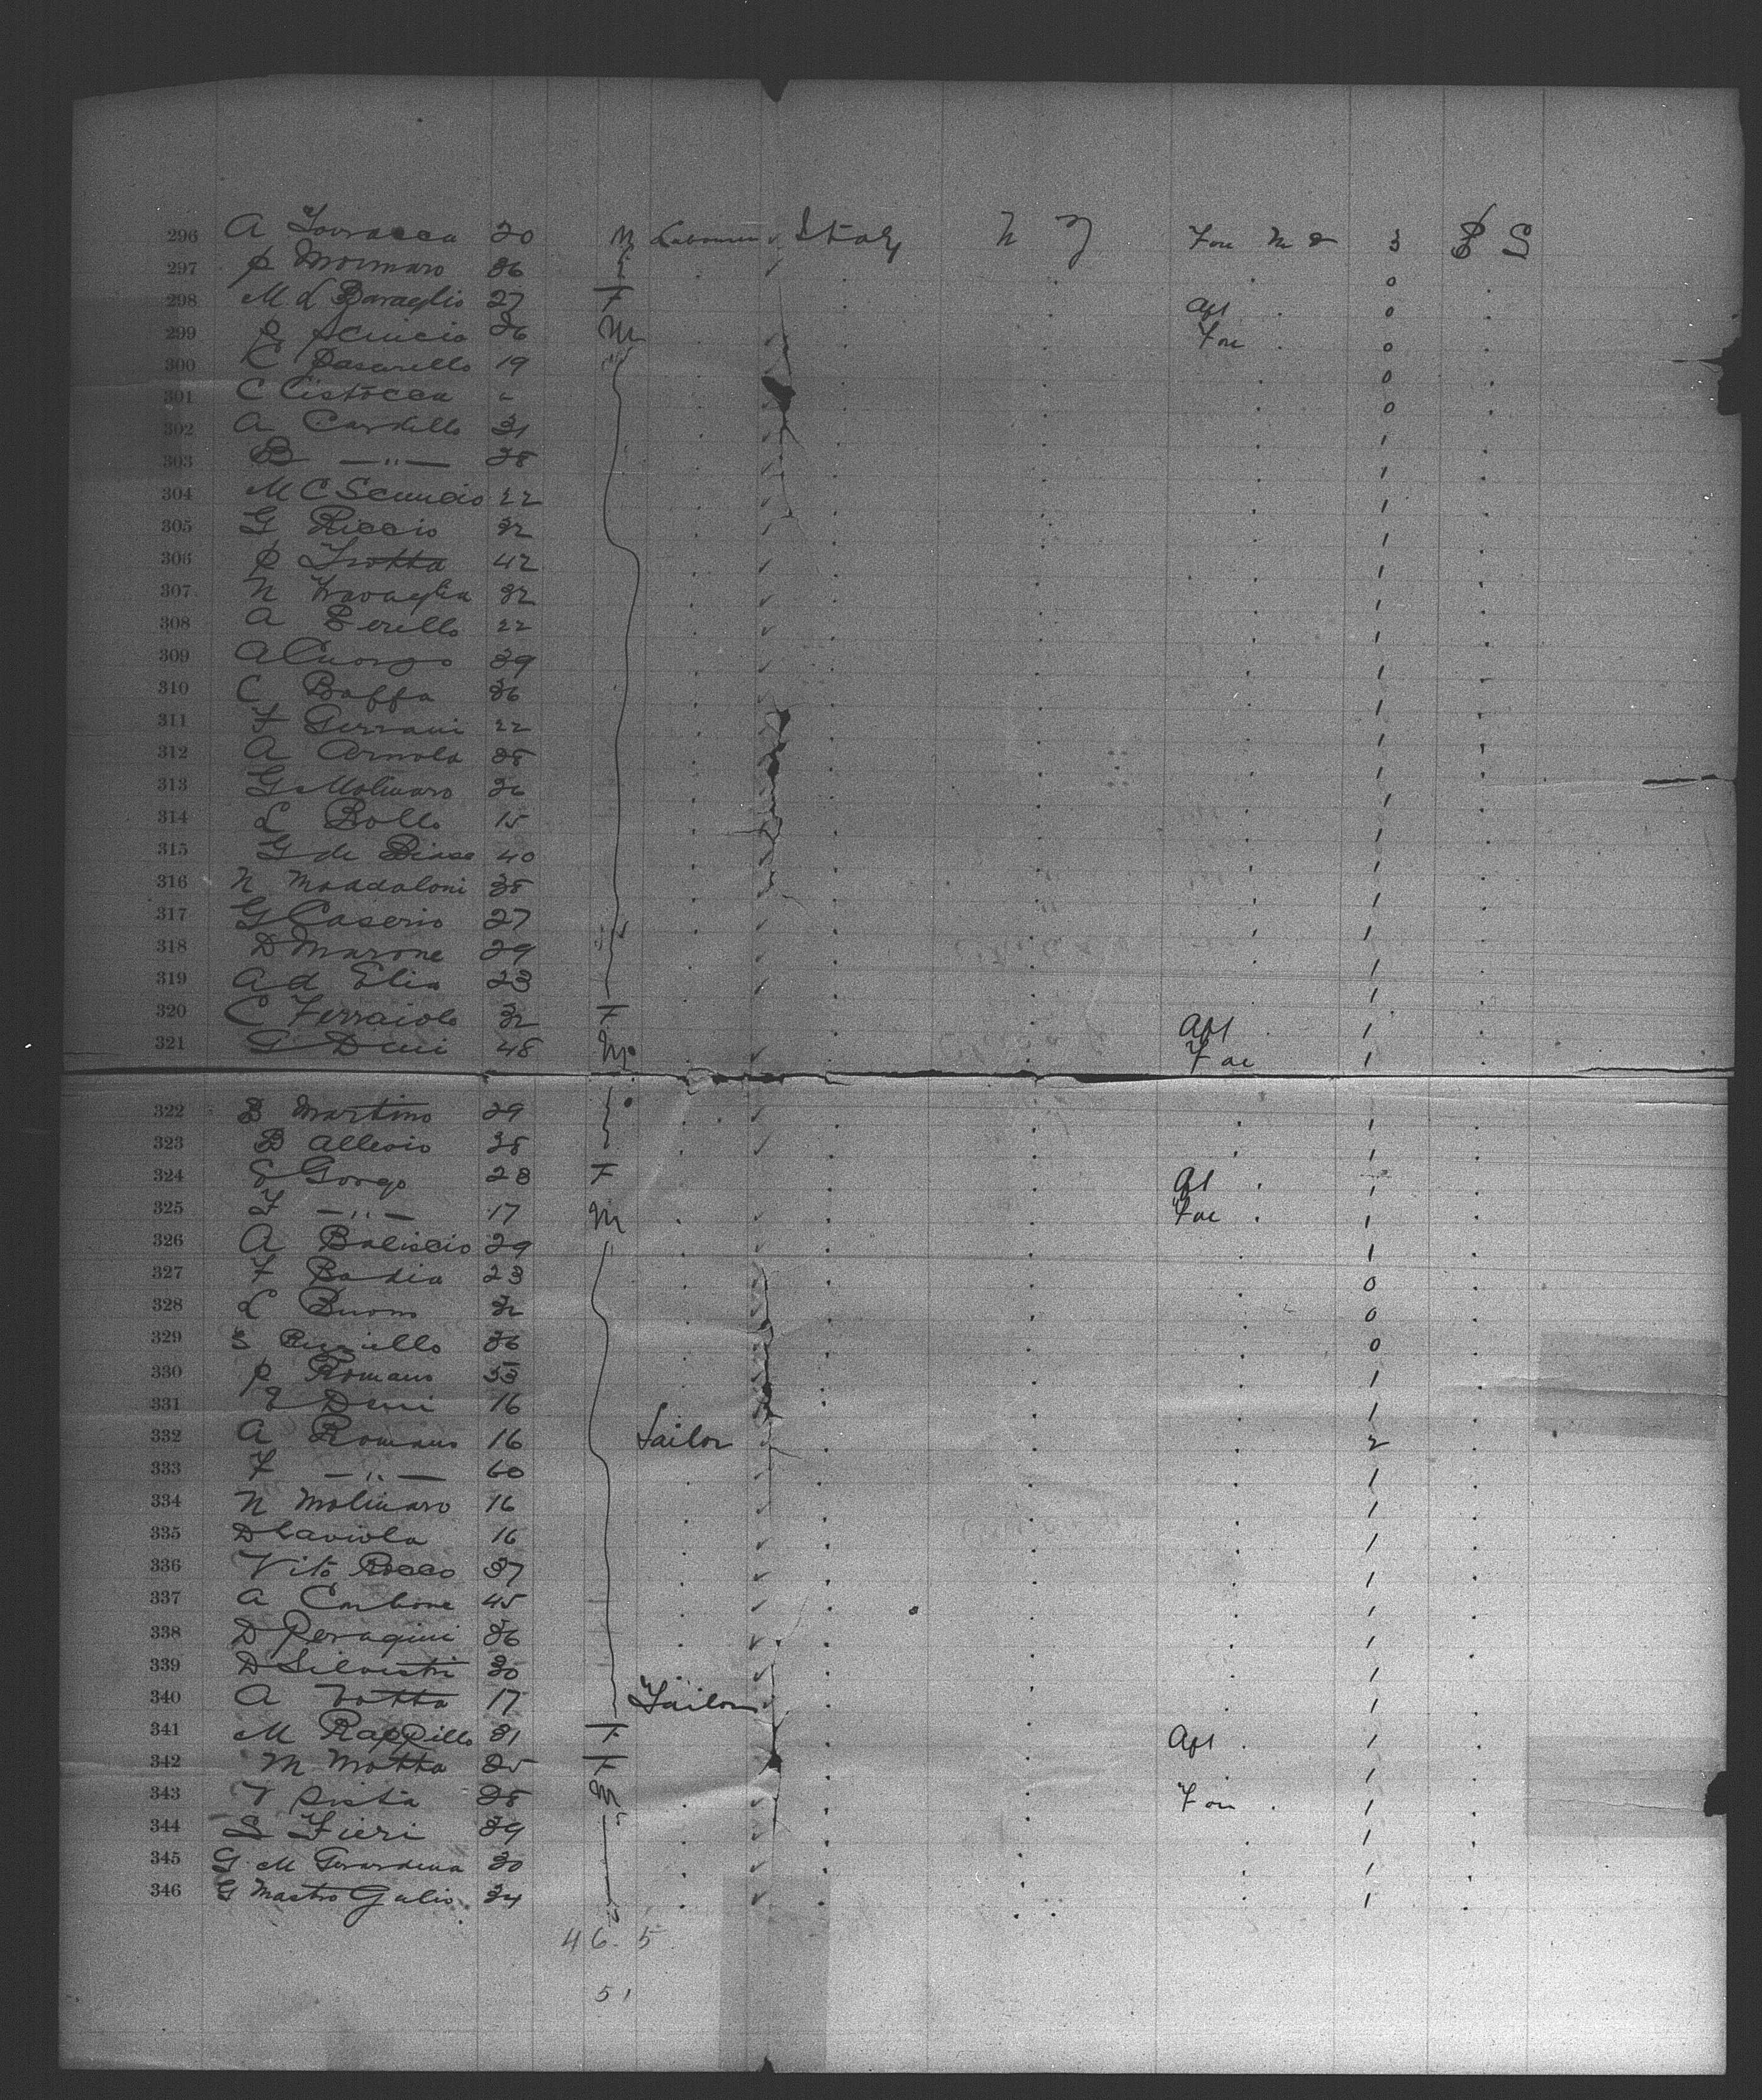 296 A 20 M Labourer ✓ Italy N Y Fore M D 3 $ S
297 P Mormaro 36 ✓ . . . 0 .
298 M L Baraglio 27 F . . Aft . 0 .
299 26 M . ✓ . . Fore . 0 .
300 C Pasarello 19 . . . 0 .
301 C Cistocca " . . . 0 .
302 A Cardillo 31 . ✓ . . . 1 .
303 B — " — 28 . ✓ . . . 1 .
304 M C Scuncio 22 . ✓ . . . 1 .
305 G Riccio 32 . ✓ . . . 1 .
306 P Trotta 42 . ✓ . . . 1 .
307 N Travaglia 32 . ✓ . . . 1 .
308 A 22 . ✓ . . . 1 .
309 A Cuorgo 39 . ✓ . . . 1 .
310 C Boffa 36 . ✓ . . . 1 .
311 F Gerrani 22 . . . . 1 .
312 A Arnola 38 . . . . 1 .
313 G Molinaro 26 . . . . 1 .
314 L Bollo 15 . . . . 1 .
315 G de Biase 40 . ✓ . . . 1 .
316 N Maddaloni 38 . ✓ . . . 1 .
317 G Caserio 27 . ✓ . . . 1 .
318 D Marone 29 . ✓ . . . 1 .
319 A d Elia 23 . ✓ . . . 1 .
320 C Ferraiolo 32 F . . Aft . 1 .
321 G 48 M . ✓ . . Fore 1 .
322 B Martino 29 . ✓ . . . 1 .
323 B Allevio 38 ✓ . . . 1 .
324 E Gorgo 28 F . . Aft . 1 .
325 F — " — 17 M . ✓ . . Fore . 1 .
326 A Baliscio 29 ✓ . . . 1 .
327 F Badia 23 . ✓ . . . 0 .
328 L Buono 32 . ✓ . . . 0 .
329 S 36 . ✓ . . . 0 .
330 P Romano 53 . ✓ . . . 1 .
331 E 16 . . . 1 .
332 A Romano 16 Tailor ✓ . . . 2 .
333 F — " — 60 ✓ . . . 1 .
334 N Molinaro 16 . ✓ . . . 1 .
335 D Laviola 16 . ✓ . . . 1 .
336 Vito Rocco 37 . ✓ . . . 1 .
337 A Carbone 45 . ✓ . . . 1 .
338 D Peragini 36 . ✓ . . . 1 .
339 D Silvestri 30 . ✓ . . . 1 .
340 A Votta 17 Tailor ✓ . . . 1 .
341 M Rappillo 31 F . . Aft . 1 .
342 M Motta 25 F . . . 1 .
343 V Pista 28 M . ✓ . . Fore . 1 .
344 S Fieri 39 . ✓ . . . 1 .
345 G M Gerardina 30 . ✓ . . . 1 .
346 G Mastro Gulio 34 . ✓ . . . 1 .
46. 5
51